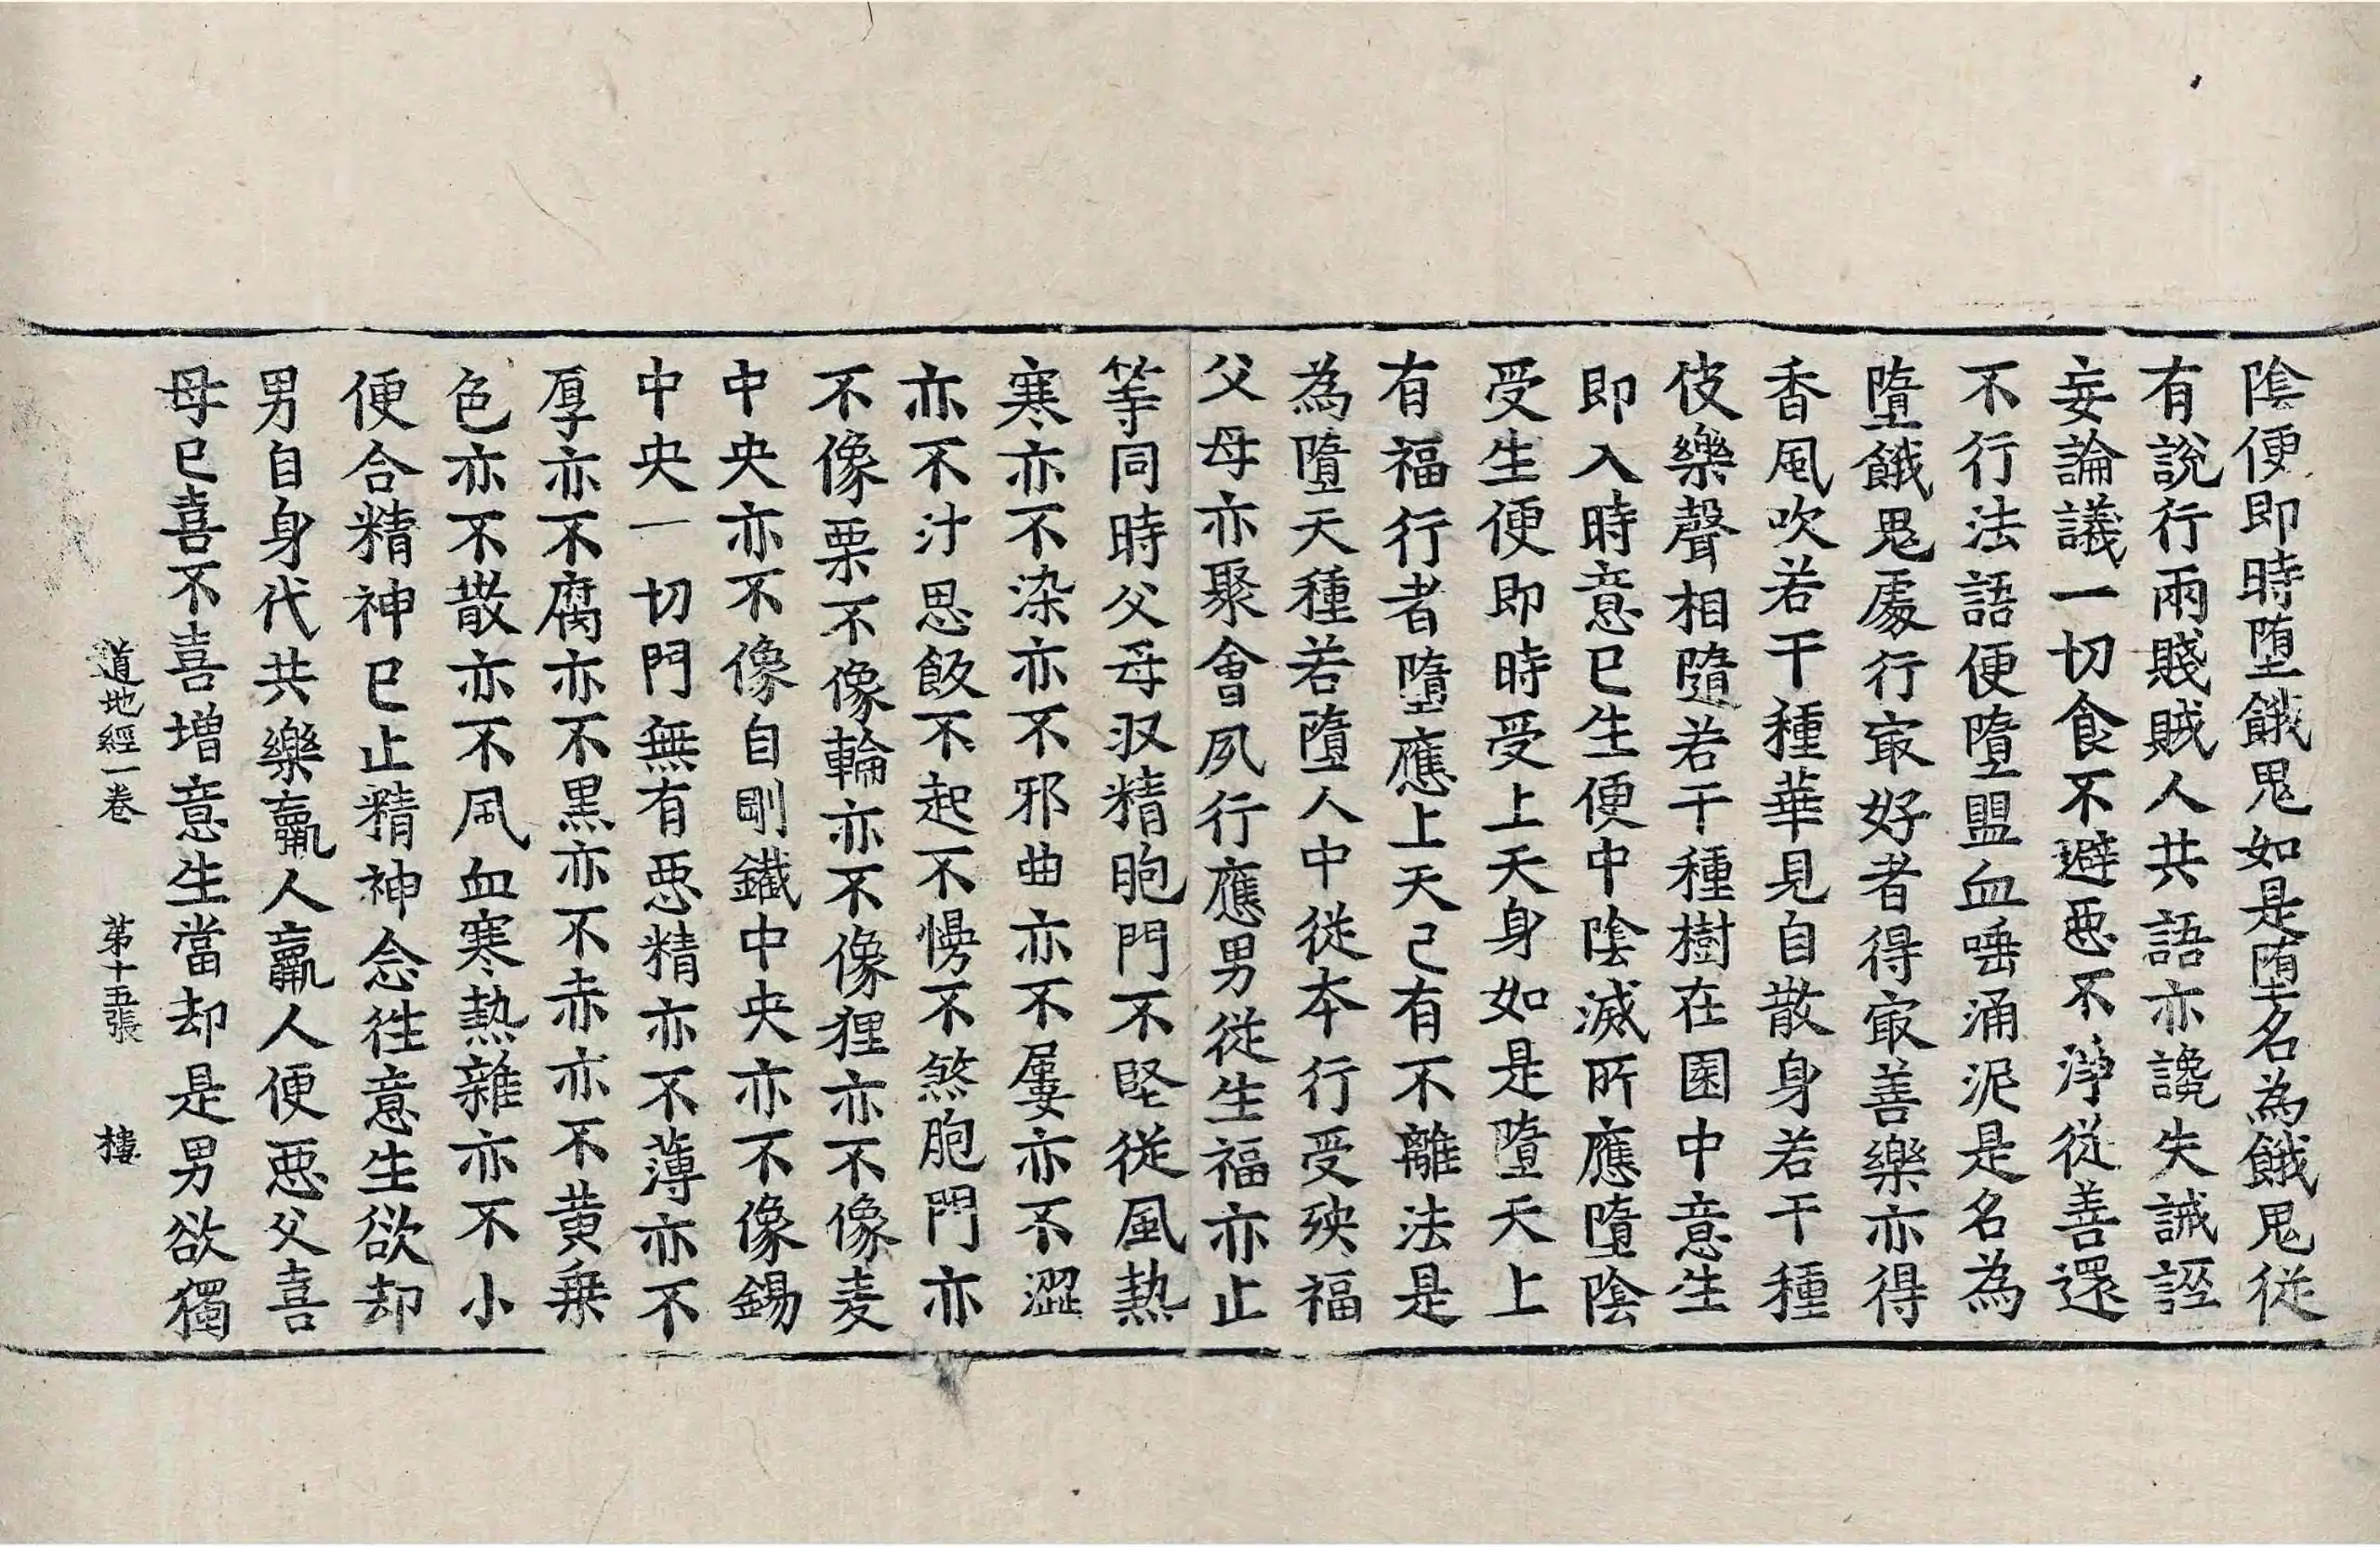 陰便即時墮餓鬼如是墮名為餓鬼從
有說行兩賤賊人共語亦讒失誡誣
妄論議一切食不避惡不淨從善還
不行法語便墮盟血唾涌泥是名為
墮餓鬼處行㝡好者得㝡善樂亦得
香風吹若干種華見自散身若干種
伎樂聲相隨若干種樹在園中意生
即入時意已生便中陰滅所應墮陰
受生便即時受上天身如是墮天上
有福行者墮應上天己有不離法是
為墮天種若墮人中從本行受殃福
父母亦聚會夙行應男從生福亦止
等同時父母収精胞門不堅從風熱
寒亦不染亦不邪曲亦不屢亦不澀
亦不汁思飯不起不慢不煞胞門亦
不像栗不像輪亦不像狸亦不像麦
中央亦不像自剛鐵中央亦不像錫
中央一切門無有惡精亦不薄亦不
厚亦不腐亦不黑亦不赤亦不黄乗
色亦不散亦不風血寒熱雜亦不小
便合精神已止精神念徃意生欲却
男自身代共樂羸人羸人便惡父喜
母已喜不喜增意生當却是男欲獨
道地經一卷 苐十五張 樓